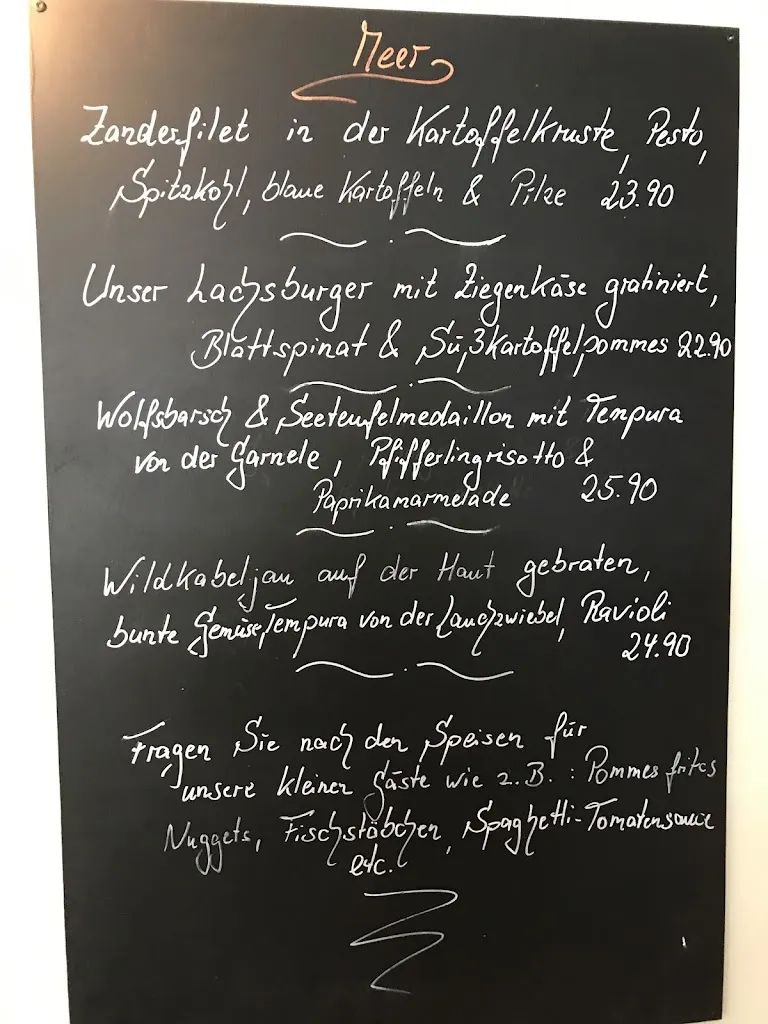 Meer
Zanderfilet in der Kartoffelkruste, Pesto,
Spitzkohl, blaue Kartoffeln & Pilze 23.90
Unser Lachsburger mit Ziegenkäse gratiniert,
Blattspinat & Süßkartoffelpommes 22.90
Wolfsbarsch & Seeteufelmedaillon mit Tempura
von der Garnele, Pfifferlingrisotto &
Paprikamarmelade 25.90
Wildkabeljau auf der Haut gebraten,
bunte Gemüse, Tempura von der Lauchzwiebel, Ravioli
24.90
Fragen Sie nach den Speisen für
unsere kleinen Gäste wie z.B.: Pommes frites
Nuggets, Fischstäbchen, Spaghetti-Tomatensauce
etc.